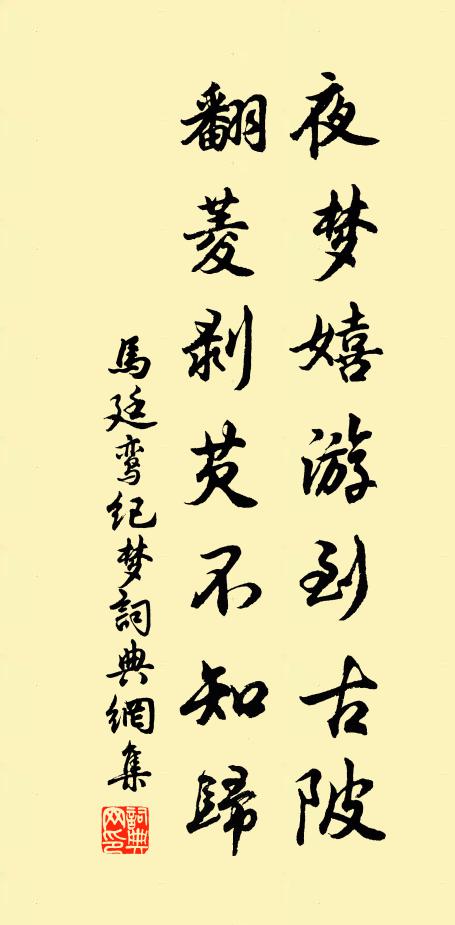 夜梦嬉游到古陂
翻菱剥芡不知歸
馬廷鸾纪梦詞典網集
詞典網印